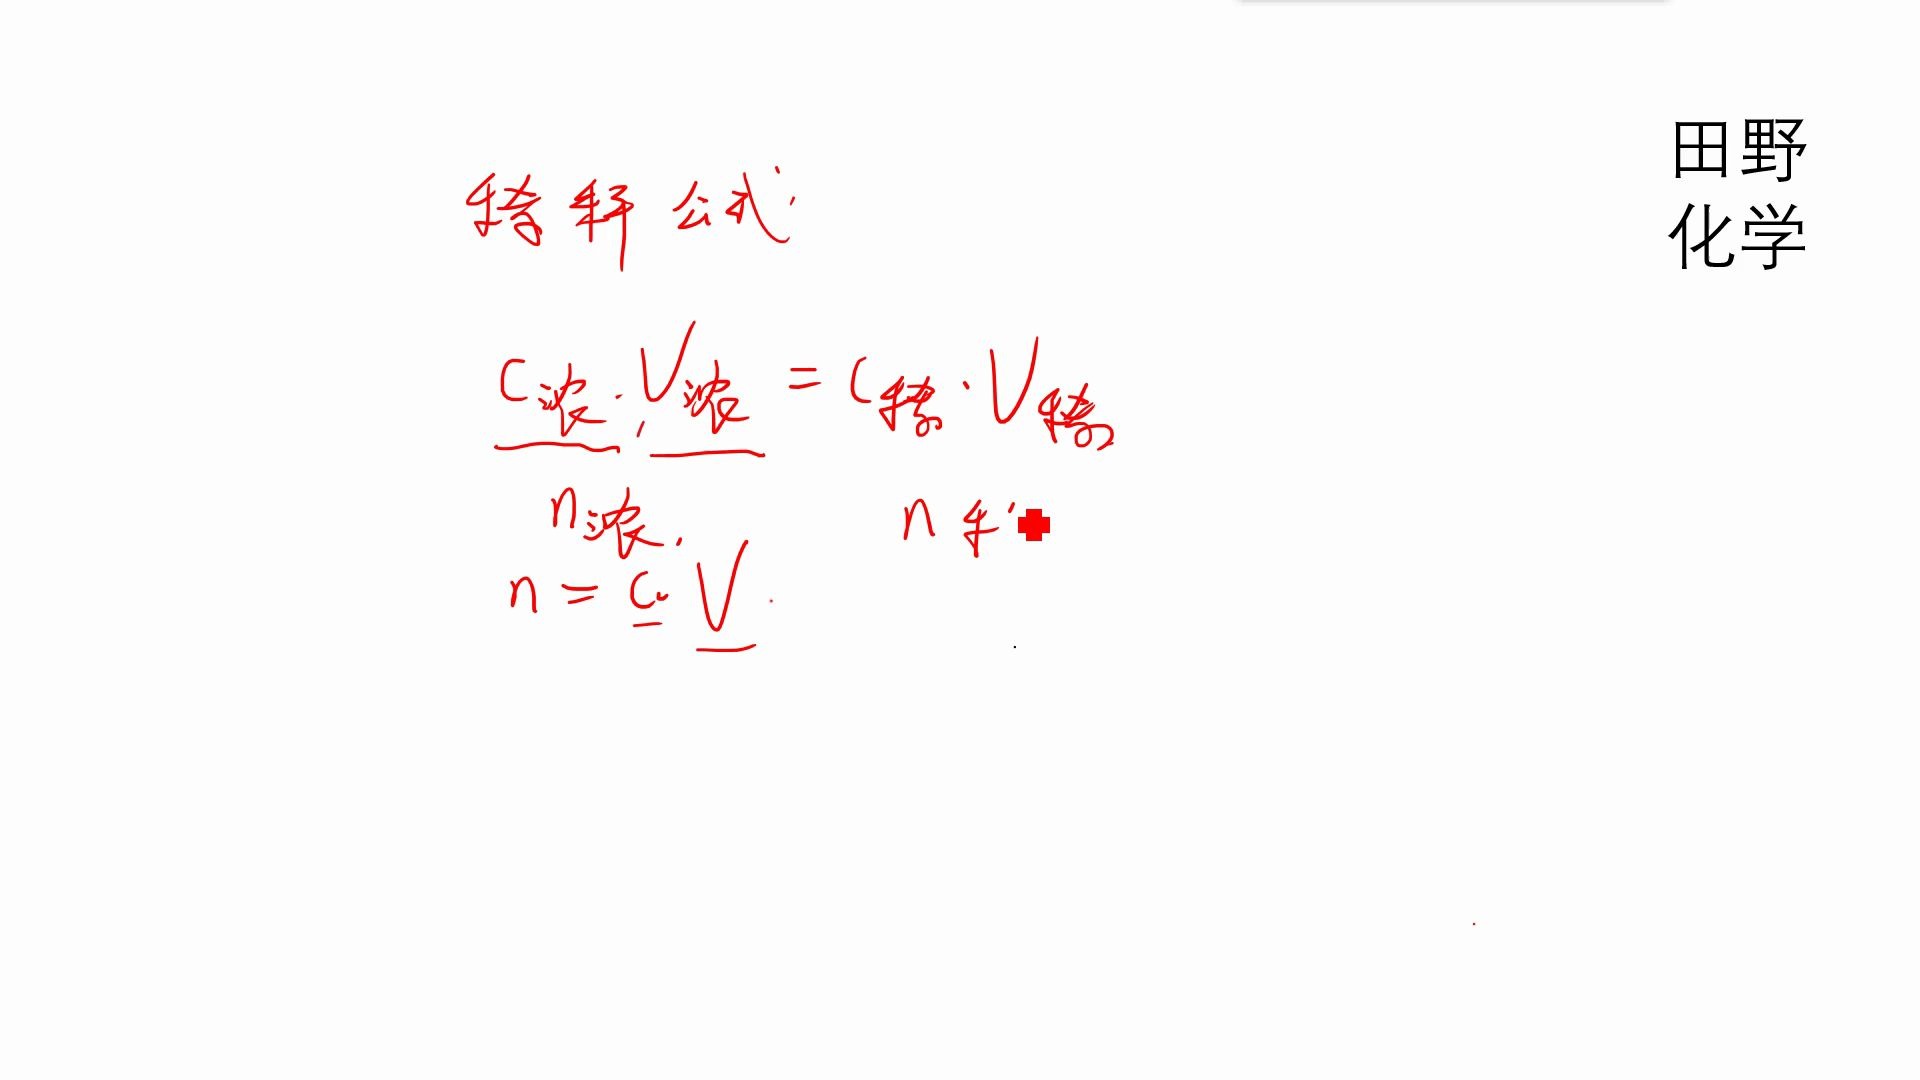 田野
化学
稀释公式:
C浓·V浓 = C稀·V稀
n浓. n
n = c·V